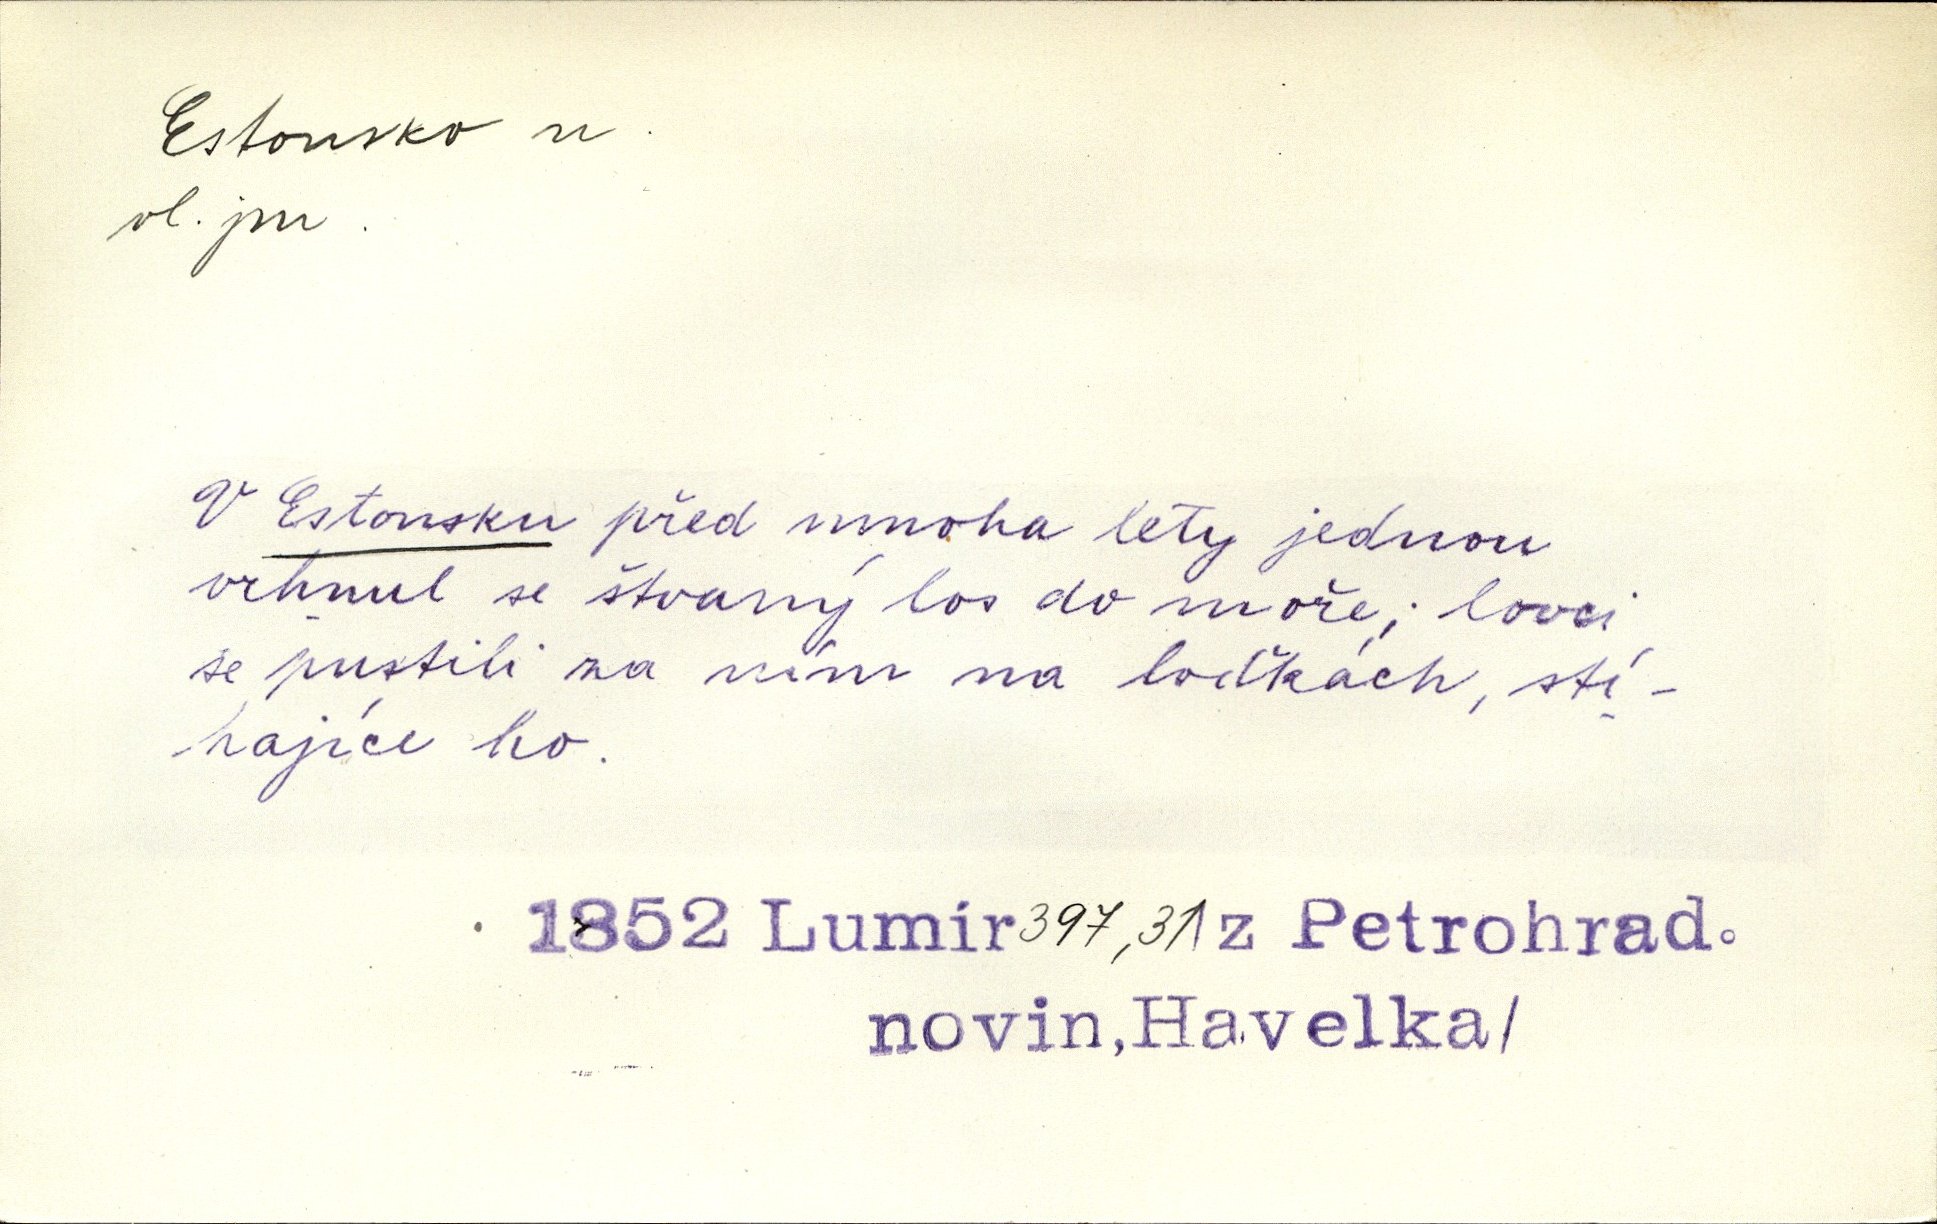 Estonsko n.
vl. jm.
V Estonsku před mnoha lety jednou
vrhnul se štvaný los do moře; lovci
se pustili za ním na loďkách, stí-
hajíce ho.
1852 Lumir 397,31/z Petrohrad.
novin,Havelka/